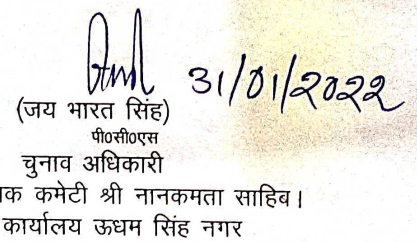 31/01/2022
(जय भारत सिंह)
पी०सी०एस
चुनाव अधिकारी
क कमेटी श्री नानकमता साहिब।
कार्यालय ऊधम सिंह नगर